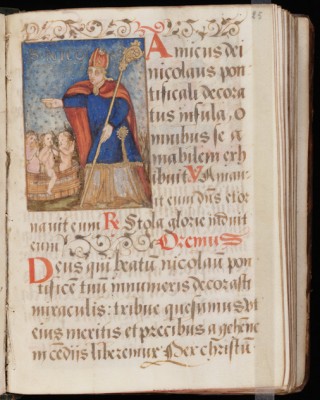 85
Amicus dei
nicolaus pon
tificali decora
tus insula, o
mnibus se a
mabilem exh
ibuit V Amau
it eum dns et or
nauit eum R Stola glorie induit
eum Oremus
Deus qui beatu nicolau pon
tifice tuu innumeris decorasti
miraculis: tribue quesumus vt
eius meritis et precibus a gehene
incendijs liberemur Per christu